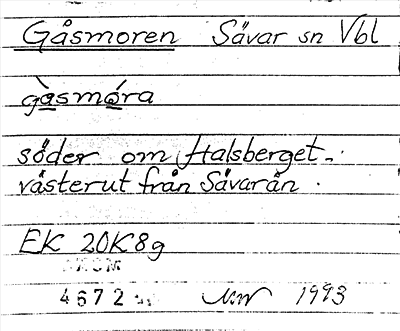 Gåsmoren Sävar sn Vbl
gòsmóra
söder om Halsberget -
västerut från Sävarån .
EK 20K8g
4672
1993